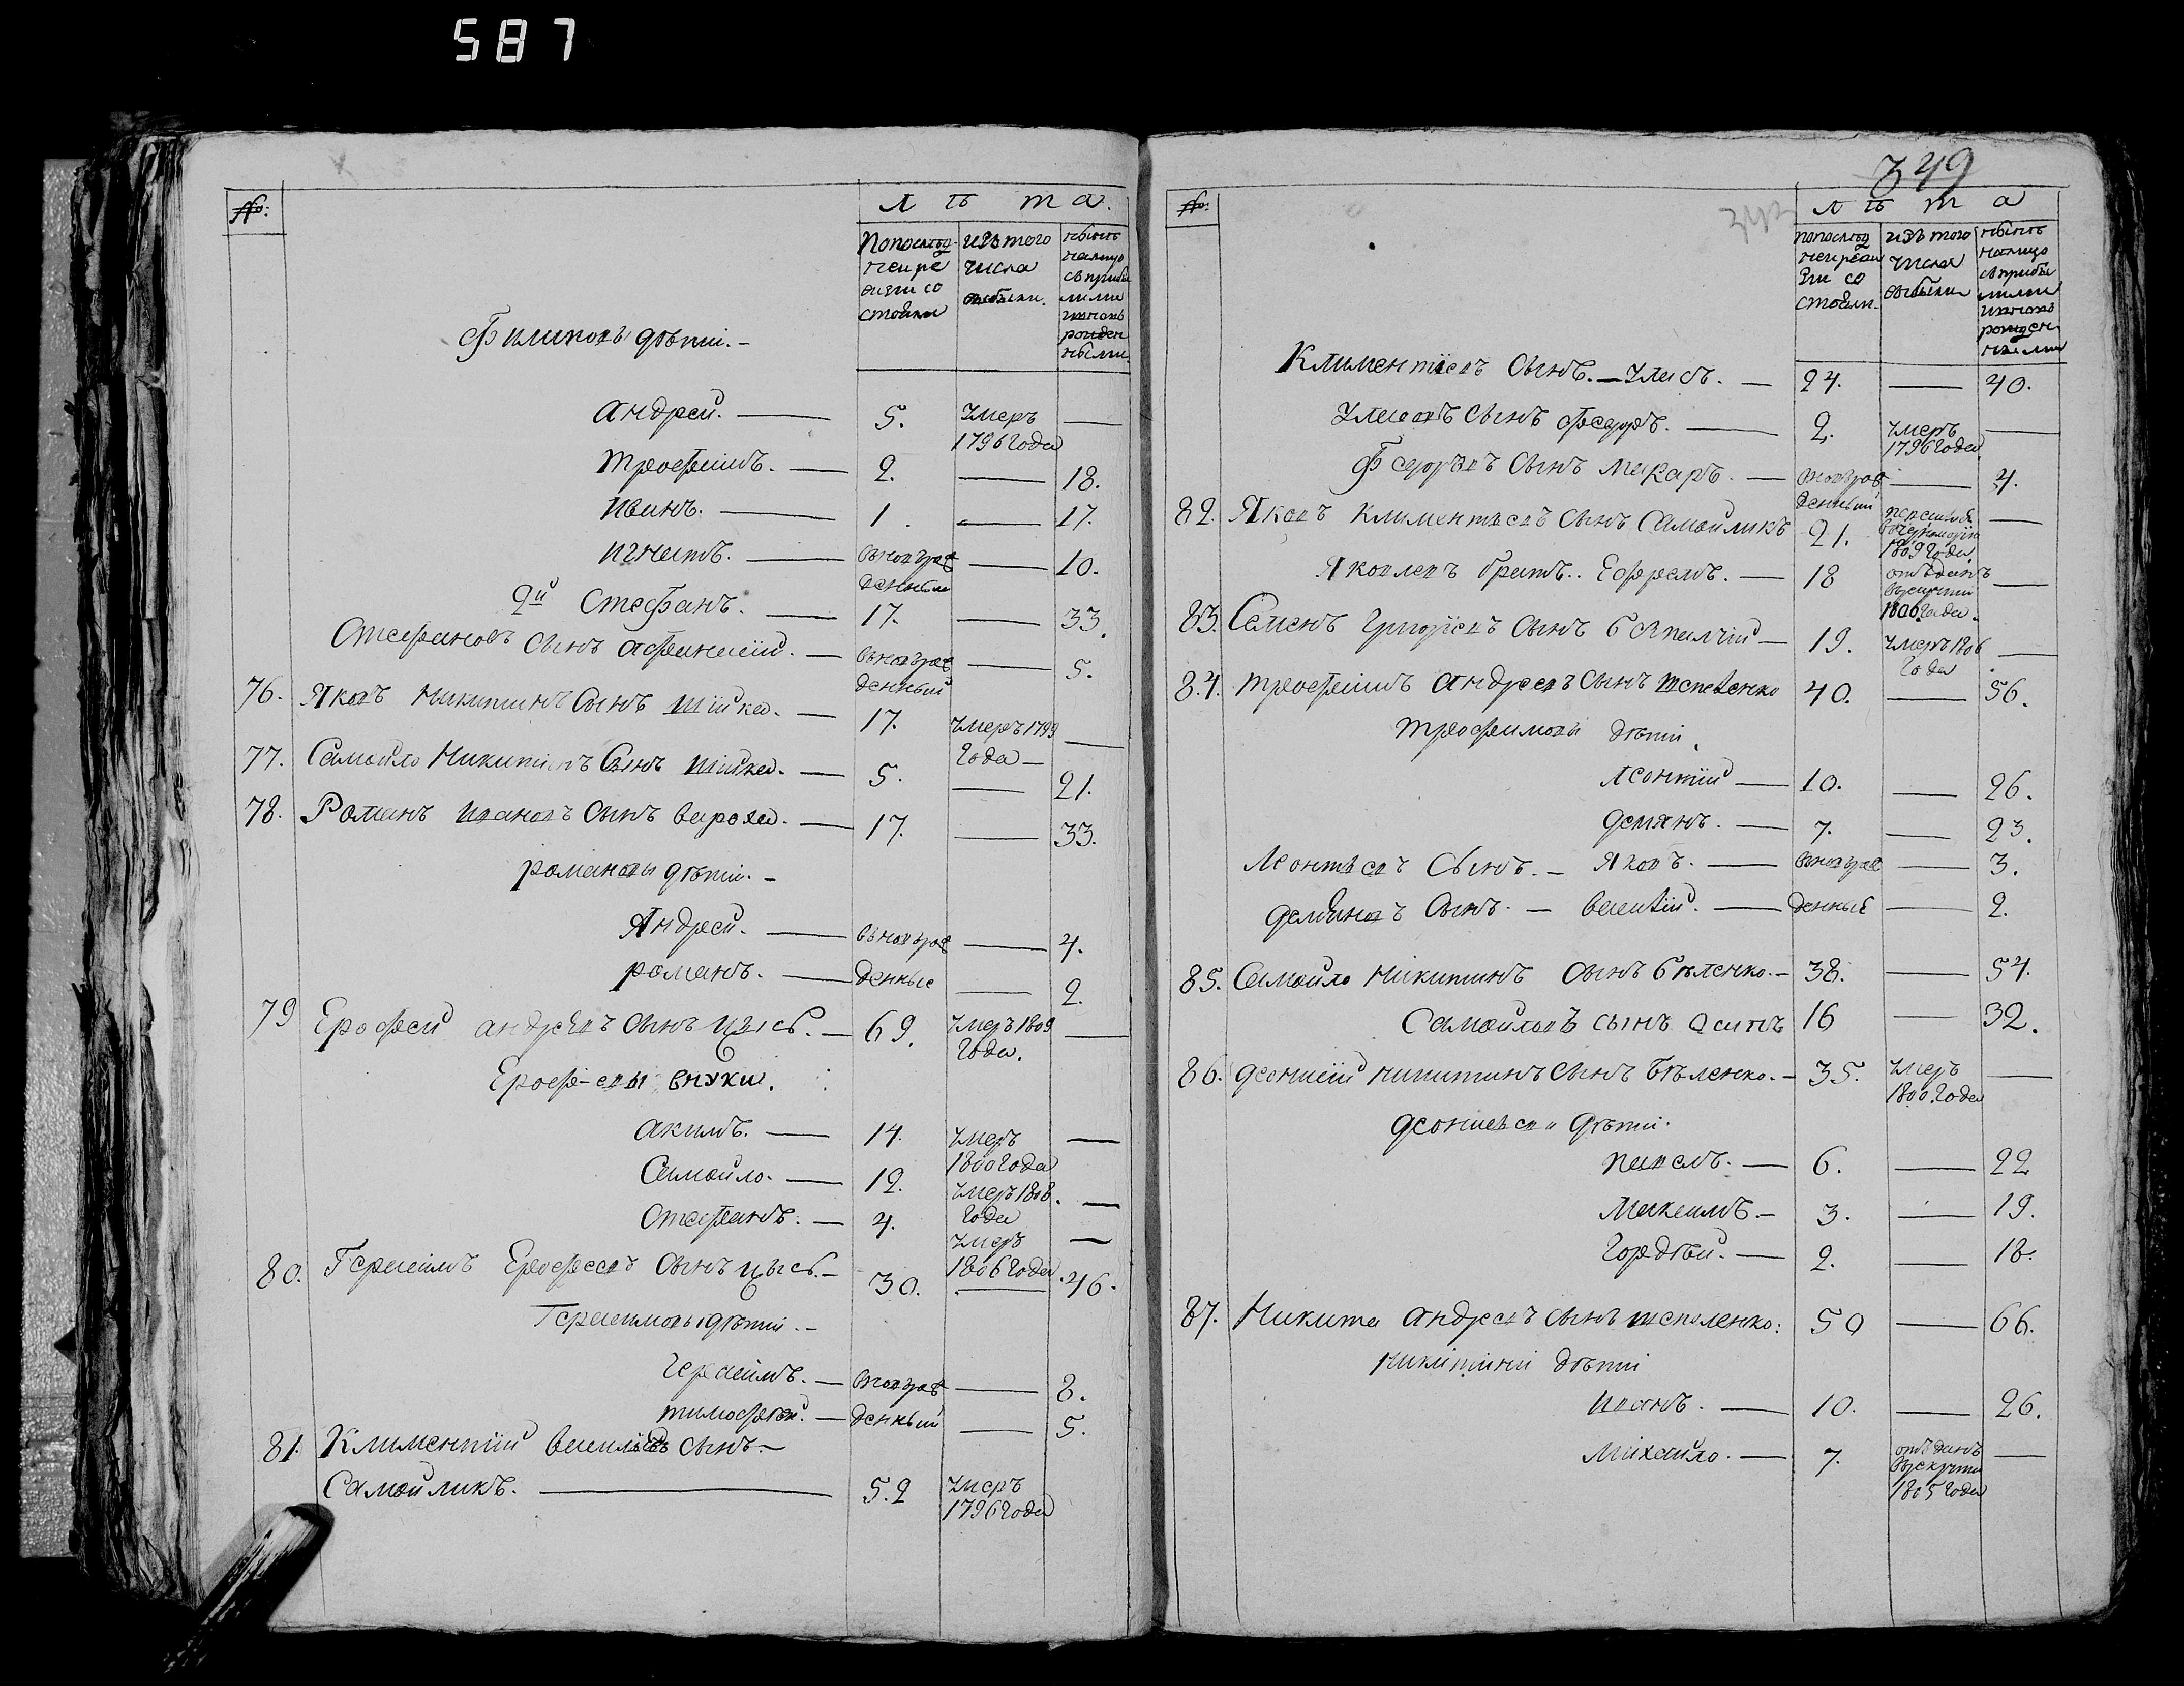 587
№:
Л ѣ т а.
Попослѣд
ней ре
визіи со
стояли
изъ того
числа
выбыли.
нынѣ
налицо
съ прибы
лыми
и вновь
рожден
ными
Филиповы дѣти. –
Андрей. — 5. умеръ 1796 Года —
Трофимъ. — 2. — 18.
Иванъ. — 1. — 17.
Игнатъ. — вновърож денный — 10.
2й Стефанъ. — 17. — 33.
Стефановъ сынъ Афанасій. — вновърож денный — 5.
76. Яковъ Никитинъ Сынъ Шійка. — 17. умеръ 1799 Года —
77. Самойло Никитинъ Сынъ Шійка. — 5. — 21.
78. Романъ Ивановъ Сынъ — 17. — 33.
Романовы дѣти. –
Андрей. — вновърож — 4.
Романъ. — денные — 2.
79 Ерофей Андреевъ Сынъ Цысь. — 69. умеръ 1809 Года. —
Ерофеевы внуки.
Акимъ. — 14. умеръ 1800 Года —
Самойло. — 12. умеръ 1808. Года —
Стефанъ. — 4. умеръ 1806 Года —
80. Герасимъ Ерофеевъ Сынъ Цысь. — 30. — 46.
Герасимовы дѣти. –
Герасимъ. — вновърож — 8.
Тимофѣй. — денный — 5.
81. Климентій Васильевъ сынъ. –
Самойликъ. — 52 умеръ 1796 Года
349
№:
Л ѣ т а
Попослѣд
ней реви
зіи со
стояли.
изъ того
числа
выбыли
нынѣ
налицо
съ прибы
лыми
и вновь
рожден
ными
Климентіевъ Сынъ. — Уласъ. — 24. — 40.
Уласовъ Сынъ Федоръ. — 2. умеръ 1796 Года —
Федоровъ Сынъ Макаръ. — вновърож денный — 4.
82. Яковъ Климентьевъ Сынъ Самойликъ 21. 1809 Года —
Яковлевъ братъ.. Ефремъ. — 18 отъданъ врекрути 1806 Года. —
83. Семенъ Григорьевъ Сынъ — 19. умеръ 1806 Года —
84. Трофимъ Андреевъ Сынъ Шепеленко 40. — 56.
Трофимовы дѣти.
Леонтій — 10. — 26.
Демянъ. — 7. — 23.
Леонтьевъ Сынъ. — Яковъ. — вновърож — 3.
Демяновъ Сынъ. — Василій. — денные — 2.
85. Самойло Никитинъ Сынъ Бѣленко. — 38. — 54.
Самойловъ сынъ Осипъ 16 — 32.
86. Деонисій Никитинъ Сынъ Бѣленко. — 35. умеръ 1800. Года —
Деонисьевы Дѣти.
Павелъ. — 6. — 22
Максимъ. — 3. — 19.
Гордѣй. — 2. — 18.
87. Никита Андреевъ Сынъ Шепеленко: 50 — 66.
Никитини дѣти
Иванъ. — 10. — 26.
Михайло. — 7. отъданъ врекрути 1805 Года —